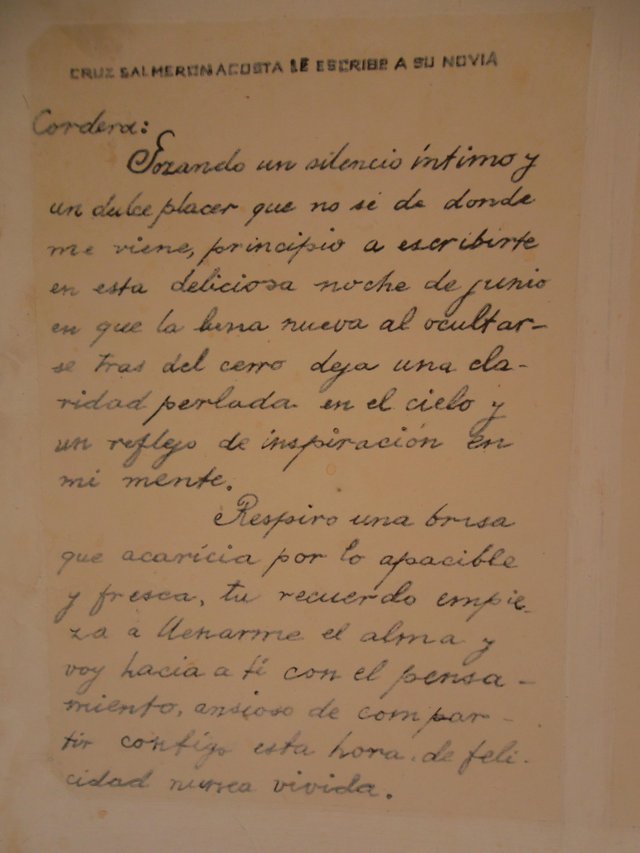 CRUZ SALMERON ACOSTA LE ESCRIBE A SU NOVIA
Cordera:
Gozando un silencio íntimo y
un dulce placer que no sé de donde
me viene, principio a escribirte
en esta deliciosa noche de junio
en que la luna nueva al ocultar-
se tras del cerro deja una cla-
ridad perlada en el cielo y
un reflejo de inspiración en
mi mente.
Respiro una brisa
que acaricia por lo apacible
y fresca, tu recuerdo empie-
za a llenarme el alma y
voy hacia a ti con el pensa-
miento, ansioso de compar-
tir contigo esta hora de feli-
cidad nunca vivida.